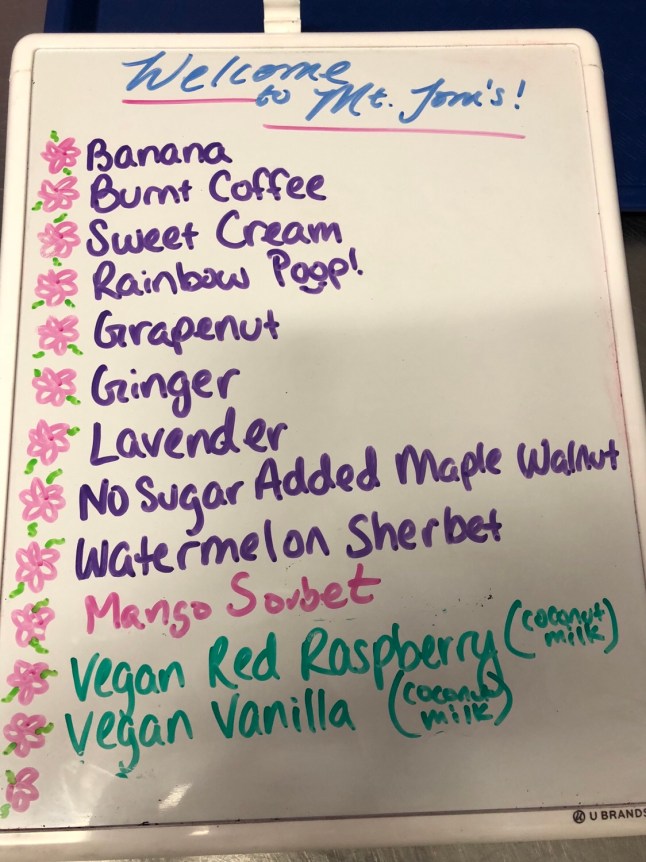 Welcome
to Mt. Tom's!
Banana
Burnt Coffee
Sweet Cream
Rainbow Poop!
Grapenut
Ginger
Lavender
No Sugar Added Maple Walnut
Watermelon Sherbet
Mango Sorbet
Vegan Red Raspberry (coconut milk)
Vegan Vanilla (coconut milk)
U BRANDS